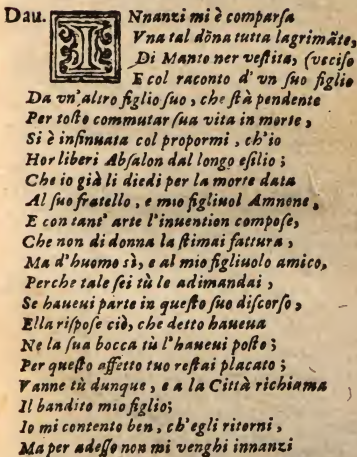 Dau. INnanzi mi è comparſa
Vna tal dõna tutta lagrimãte,
Di Manto ner veſtita, (vcciſo
E col raconto d' vn ſuo figlio
Da vn'altro figlio ſuo, che ſtà pendente
Per toſto commutar ſua vita in morte,
Si è inſinuata col propormi, ch'io
Hor liberi Abſalon dal longo eſilio;
Che io già li diedi per la morte data
Al ſuo fratello, e mio figliuol Amnone,
E con tant' arte l'inuention compoſe,
Che non di donna la ſtimai fattura,
Ma d'huomo sì, e al mio figliuolo amico,
Perche tale ſei tù le adimandai,
Se haueui parte in queſto ſuo diſcorſo,
Ella riſpoſe ciò, che detto haueua
Ne la ſua bocca tù l'haueui poſto;
Per queſto affetto tuo reſtai placato;
Vanne tù dunque, e a la Città richiama
Il bandito mio figlio;
Io mi contento ben, ch'egli ritorni,
Ma per adeſſo non mi venghi innanzi